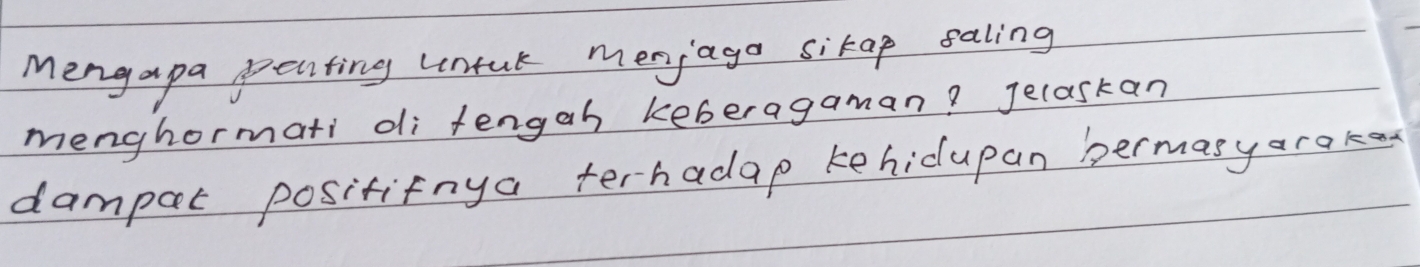 Mengapa penting untuk menjaga sikap saling
menghormati di tengah keberagaman? Jelaskan
dampak positifnya terhadap kehidupan bermasyarakat